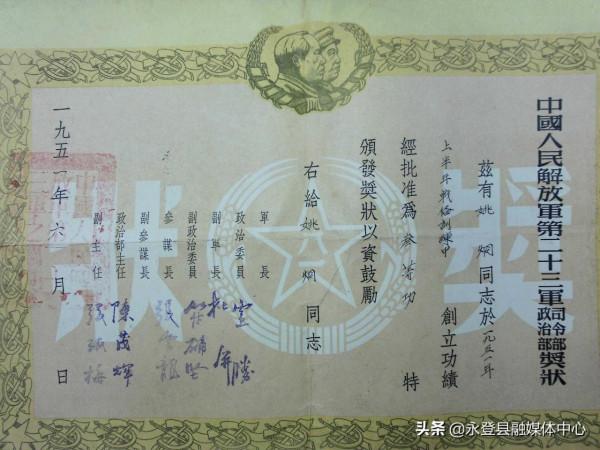 獎狀
中國人民解放軍第二十三軍司令部政治部獎狀
茲有姚炯同志於一九五一年
上半年戰備訓練中創立功績
經批准爲叁等功特
頒發獎狀以資鼓勵
右給姚炯同志
軍長
政治委員
副軍長
副政治委員
參謀長
副參謀長
政治部主任 陳茂輝
副主任
一九五一年六月日
头条 @永登县融媒体中心